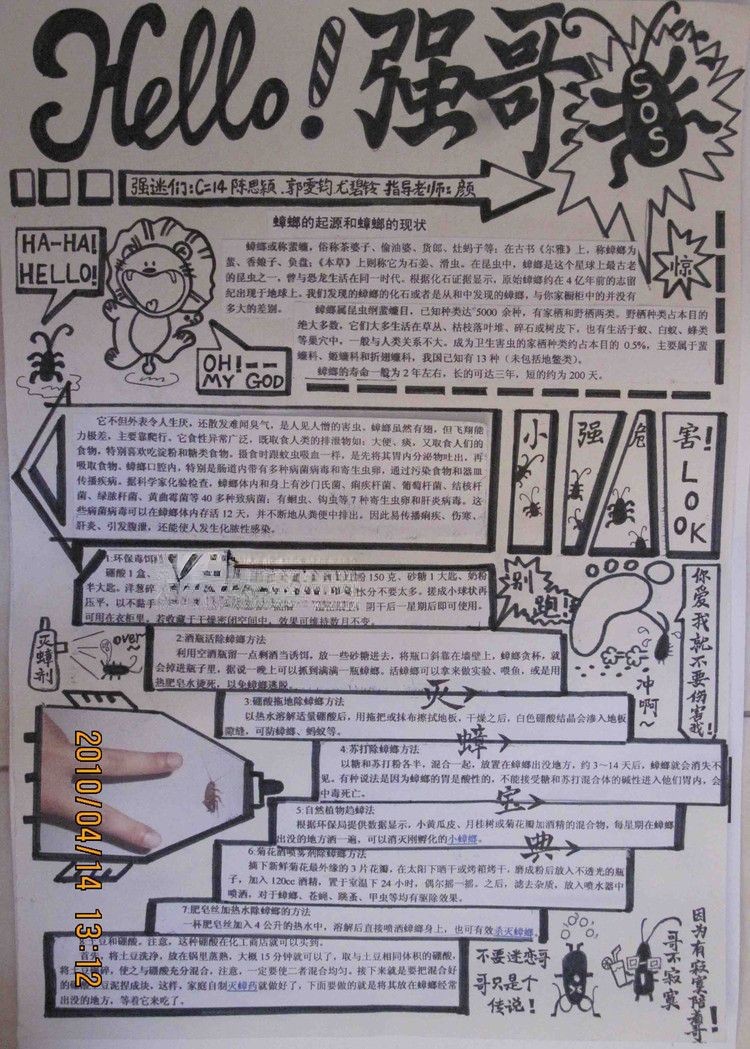 Hello!强哥
SOS
强迷们:C=14 陈思颖.郭雯钧 尤碧铃 指导老师:颜
蟑螂的起源和蟑螂的现状
HA-HA!
HELLO!
蟑螂或称蜚蠊,俗称茶婆子、偷油婆、货郎、灶蚂子等;在古书《尔雅》上,称蟑螂为
蜚、香娘子、负盘;《本草》上则称它为石姜、滑虫。在昆虫中,蟑螂是这个星球上最古老
的昆虫之一,曾与恐龙生活在同一时代。根据化石证据显示,原始蟑螂约在4亿年前的志留
纪出现于地球上。我们发现的蟑螂的化石或者是从和中发现的蟑螂,与你家橱柜中的并没有
多大的差别。
惊
蟑螂属昆虫纲蜚蠊目,已知种类达5000余种,有家栖和野栖两类。野栖种类占本目的
绝大多数,它们大多生活在草丛、枯枝落叶堆、碎石或树皮下,也有生活于蚁、白蚁、蜂类
等巢穴中,一般与人类关系不大。成为卫生害虫的家栖种类约占本目的0.5%,主要属于蜚
蠊科、姬蠊科和折翅蠊科,我国已知有13种(未包括地鳖类)。
蟑螂的寿命一般为2年左右,长的可达三年,短的约为200天。
OH!--
MY GOD
它不但外表令人生厌,还散发难闻臭气,是人见人憎的害虫。蟑螂虽然有翅,但飞翔能
力极差,主要靠爬行。它食性异常广泛,既取食人类的排泄物如:大便、痰,又取食人们的
食物,特别喜欢吃淀粉和糖类食物。摄食时跟蚊虫吸血一样,是先将其胃内分泌物吐出,再
吸取食物。蟑螂口腔内,特别是肠道内带有多种病菌病毒和寄生虫卵,通过污染食物和器皿
传播疾病。据科学家化验检查,蟑螂体内和身上有沙门氏菌、痢疾杆菌、葡萄杆菌、结核杆
菌、绿脓杆菌、黄曲霉菌等40多种致病菌;有蛔虫、钩虫等7种寄生虫卵和肝炎病毒。这
些病菌病毒可以在蟑螂体内存活12天,并不断地从粪便中排出。因此易传播痢疾、伤寒、
肝炎、引发腹泄,还能使人发生化脓性感染。
小强危害!
LOOK
1:环保毒饵
硼酸1盒、
粉150克、砂糖1大匙、奶粉
半大匙。洋葱碎
水分不要太多。搓成小球状再
压平,以不黏手
阴干后一星期后即可使用。
可用在衣柜里,若收藏于干燥密闭空间中,效果可维持数月不变。
别跑!
你爱我就不要伤害我!
冲啊~
灭蟑剂
over~
2:酒瓶活除蟑螂方法
利用空酒瓶留一点剩酒当诱饵,放一些砂糖进去,将瓶口斜靠在墙壁上,蟑螂贪杯,就
会掉进瓶子里,据说一晚上可以抓到满满一瓶蟑螂。活蟑螂可以拿来做实验、喂鱼,或是用
热肥皂水烫死,以免蟑螂逃脱。
灭
蟑
宝
典
3:硼酸拖地除蟑螂方法
以热水溶解适量硼酸后,用拖把或抹布擦拭地板,干燥之后,白色硼酸结晶会渗入地板
隙缝,可防蟑螂、蚂蚁等。
4:苏打除蟑螂方法
以糖和苏打粉各半,混合一起,放置在蟑螂出没地方,约3~14天后,蟑螂就会消失不
见。有种说法是因为蟑螂的胃是酸性的,不能接受糖和苏打混合体的碱性进入他们胃内,会
中毒死亡。
5:自然植物趋蟑法
根据环保局提供数据显示,小黄瓜皮、月桂树或菊花瓣加酒精的混合物,每星期在蟑螂
出没的地方洒一遍,可以消灭刚孵化的小蟑螂。
6:菊花酒喷雾剂除蟑螂方法
摘下新鲜菊花最外缘的3片花瓣,在太阳下晒干或烤箱烤干,磨成粉后放入不透光的瓶
子,加入120cc酒精,置于室温下24小时,偶尔摇一摇。之后,滤去杂质,放入喷水器中
喷洒,对于蟑螂、苍蝇、跳蚤、甲虫等均有驱除效果。
7:肥皂丝加热水除蟑螂的方法
一杯肥皂丝加入4公升的热水中,溶解后直接喷洒蟑螂身上,也可有效杀灭蟑螂。
土豆和硼酸。注意,这种硼酸在化工商店就可以买到。
首先,将土豆洗净,放在锅里蒸熟,大概15分钟就可以了,取与土豆相同体积的硼酸,
将土豆碎,使之与硼酸充分混合,注意,一定要使二者混合均匀。接下来就是要把混合好
的硼酸土豆泥捏成块,这样,家庭自制灭蟑药就做好了,下面要做的就是将其放在蟑螂经常
出没的地方,等着它来吃了。
不要迷恋哥
哥只是个
传说!
哥不寂寞
因为有寂寞陪着哥!
2010/04/14 13:12